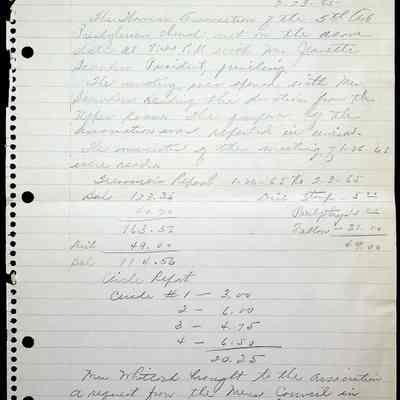 2-23-65
The Women's Association of the 5th Ave
Presbyterian church met on the above
date at P.M. with Mrs Jeanette
President, presiding.
The meeting was opened with Mrs
reading the devotions from the
Upper Room. The purpose of the
Association was repeated in unison.
The minutes of the meeting of 1-26-65
were read.
Treasurer's Report 1-26-65 to 2-23-65
Bal 123.26
40.70
163.56
49.00
Bal 114.56
5
21.00
49.00
Circle Report
Circle #1 — 3.00
2 — 6.00
3 — 4.75
4 — 6.50
20.25
Mrs brought to the association
a request from the Council in